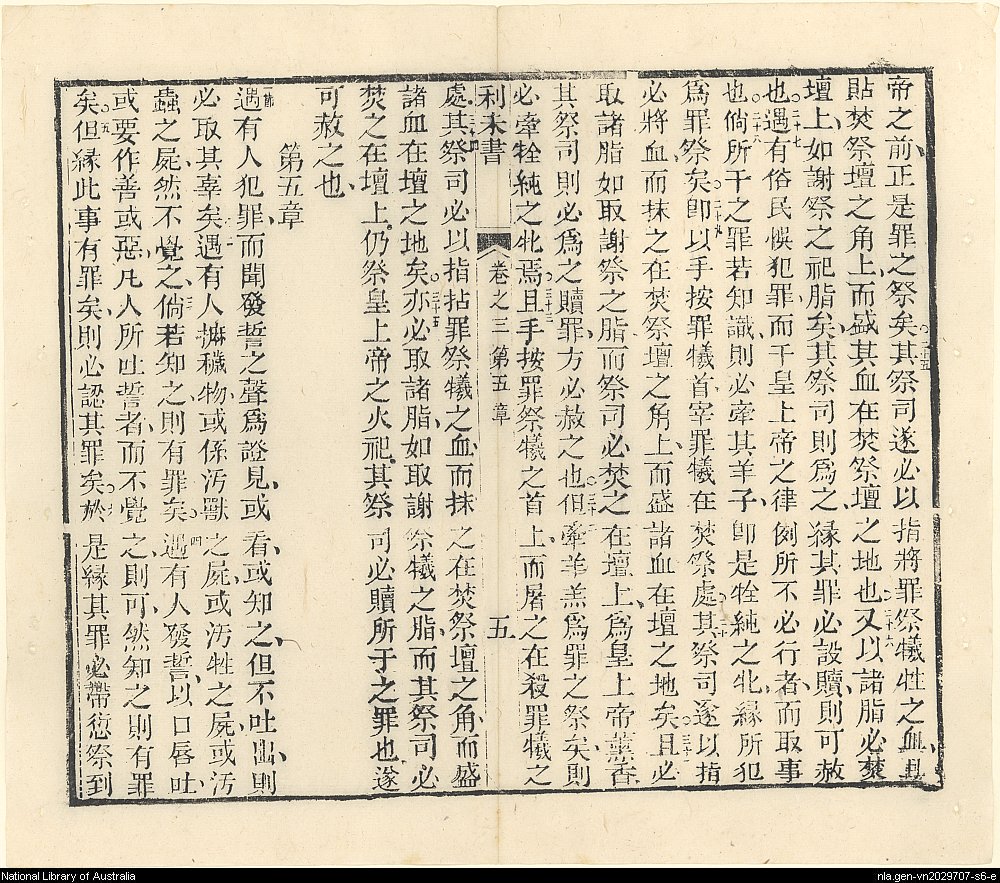 帝之前正是罪之祭矣○二十五其祭司遂必以指將罪祭犧牲之血且
貼焚祭壇之角上而盛其血在焚祭壇之地也○二十六又以諸脂必焚
壇上如謝祭之祀脂矣其祭司則爲之緣其罪必設贖則可赦
也○二十七遇有俗民悞犯罪而干皇上帝之律例所不必行者而取事
也○二十八倘所干之罪若知識則必牽其羊子卽是牷純之牝緣所犯
爲罪祭矣○二十九卽以手按罪犧首宰罪犧在焚祭處○三十其祭司遂以指
必將血而抹之在焚祭壇之角上而盛諸血在壇之地矣○三十一且必
取諸脂如取謝祭之脂而祭司必焚之在壇上爲皇上帝薰香
其祭司則必爲之贖罪方必赦之也○三十二但牽羊羔爲罪之祭矣則
必牽牷純之牝焉○三十三且手按罪祭犧之首上而屠之在殺罪犧之
利未書 卷之三 第五章 五
處○三十四其祭司必以指拈罪祭犧之血而抹之在焚祭壇之角而盛
諸血在壇之地矣○三十五亦必取諸脂如取謝祭犧之脂而其祭司必
焚之在壇上仍祭皇上帝之火祀其祭司必贖所干之罪也遂
可赦之也
第五章
一節遇有人犯罪而聞發誓之聲爲證見或看或知之但不吐出則
必取其辜矣○二遇有人撫穢物或係汚獸之屍或汚牲之屍或汚
蟲之屍然不覺之○三倘若知之則有罪矣○四遇有人發誓以口唇吐
或要作善或惡凡人所吐誓者而不覺之則可然知之則有罪
矣○五但緣此事有罪矣則必認其罪矣○六於是緣其罪必帶愆祭到
National Library of Australia
nla.gen-vn2029707-s6-e